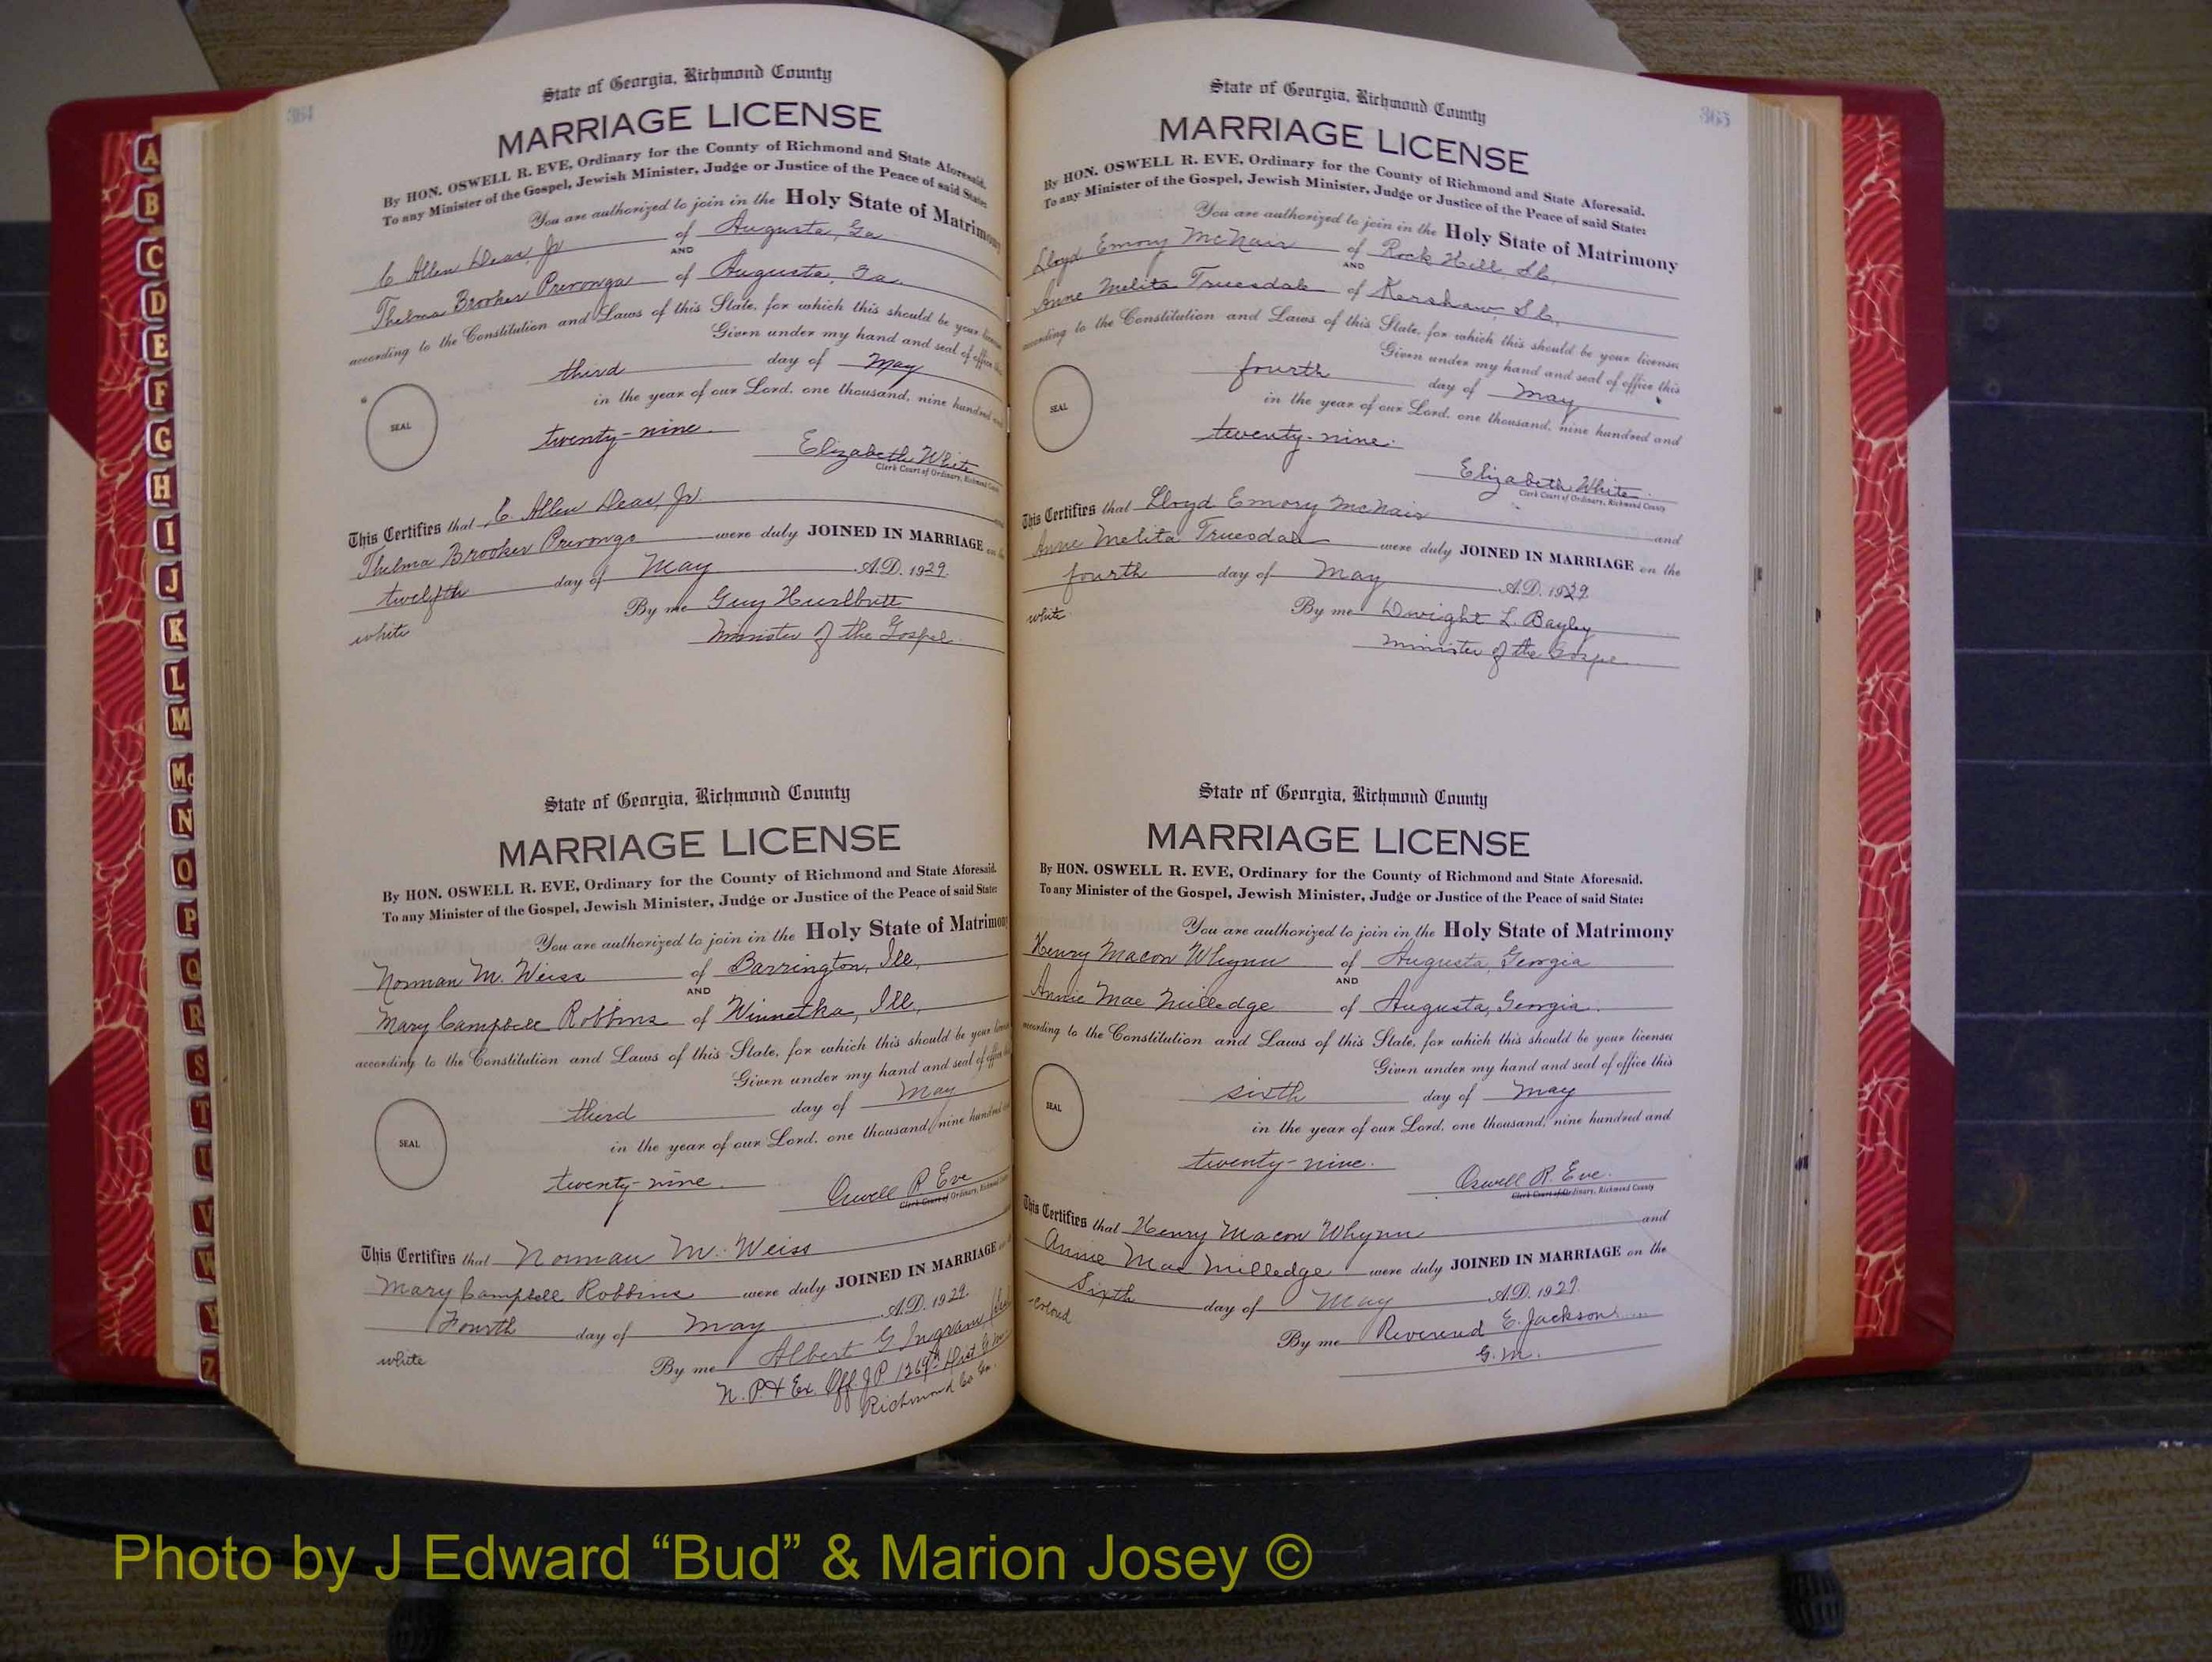 364
State of Georgia, Richmond County
MARRIAGE LICENSE
By HON. OSWELL R. EVE, Ordinary for the County of Richmond and State Aforesaid.
To any Minister of the Gospel, Jewish Minister, Judge or Justice of the Peace of said State:
You are authorized to join in the Holy State of Matrimony
C Allen Deas, Jr of Augusta, Ga
AND
Thelma Brooker of Augusta, Ga.
according to the Constitution and Laws of this State, for which this should be your license
Given under my hand and seal of office this
third day of May
in the year of our Lord, one thousand, nine hundred and
SEAL
twenty-nine.
Elizabeth White
Clerk Court of Ordinary, Richmond County
This Certifies that C. Allen Deas, Jr.
Thelma Brooker were duly JOINED IN MARRIAGE on the
twelfth day of May A.D. 1929.
By me Guy Hurlbutt
white
Minister of the Gospel.
State of Georgia, Richmond County
MARRIAGE LICENSE
By HON. OSWELL R. EVE, Ordinary for the County of Richmond and State Aforesaid.
To any Minister of the Gospel, Jewish Minister, Judge or Justice of the Peace of said State:
You are authorized to join in the Holy State of Matrimony
Norman M. Weiss of Barrington, Ill,
AND
Mary Campbell Robbins of Winnetka, Ill,
according to the Constitution and Laws of this State, for which this should be your license
Given under my hand and seal of office this
third day of May
in the year of our Lord, one thousand, nine hundred and
SEAL
twenty-nine.
Oswell R Eve
Clerk Court of Ordinary, Richmond County
This Certifies that Norman M. Weiss
Mary Campbell Robbins were duly JOINED IN MARRIAGE on
Fourth day of May A.D. 1929.
white
By me Albert G Ingram
N. P. & Ex. Off. J P 1269th Dist G.M.
Richmond Co Ga.
365
State of Georgia, Richmond County
MARRIAGE LICENSE
By HON. OSWELL R. EVE, Ordinary for the County of Richmond and State Aforesaid.
To any Minister of the Gospel, Jewish Minister, Judge or Justice of the Peace of said State:
You are authorized to join in the Holy State of Matrimony
Lloyd Emory McNair of Rock Hill S.C.,
AND
Anne Melita Truesdale of Kershaw, S.C.,
according to the Constitution and Laws of this State, for which this should be your license
Given under my hand and seal of office this
fourth day of May
in the year of our Lord, one thousand, nine hundred and
SEAL
twenty-nine.
Elizabeth White.
Clerk Court of Ordinary, Richmond County
This Certifies that Lloyd Emory McNair and
Anne Melita Truesdale were duly JOINED IN MARRIAGE on the
fourth day of May A.D. 1929.
white
By me Dwight L. Bayley
Minister of the Gospel
State of Georgia, Richmond County
MARRIAGE LICENSE
By HON. OSWELL R. EVE, Ordinary for the County of Richmond and State Aforesaid.
To any Minister of the Gospel, Jewish Minister, Judge or Justice of the Peace of said State:
You are authorized to join in the Holy State of Matrimony
Henry Macon Whynn of Augusta, Georgia
AND
Annie Mae Milledge of Augusta, Georgia.
according to the Constitution and Laws of this State, for which this should be your license
Given under my hand and seal of office this
sixth day of May
in the year of our Lord, one thousand, nine hundred and
SEAL
twenty-nine.
Oswell R. Eve.
Clerk Court of Ordinary, Richmond County
This Certifies that Henry Macon Whynn and
Annie Mae Milledge were duly JOINED IN MARRIAGE on the
Sixth day of May A.D. 1929.
colored
By me Reverend E. Jackson
G.M.
A
B
C
D
E
F
G
H
I
J
K
L
M
Mc
N
O
P
Q
R
S
T
U
V
W
Y
Z
Photo by J Edward “Bud” & Marion Josey ©